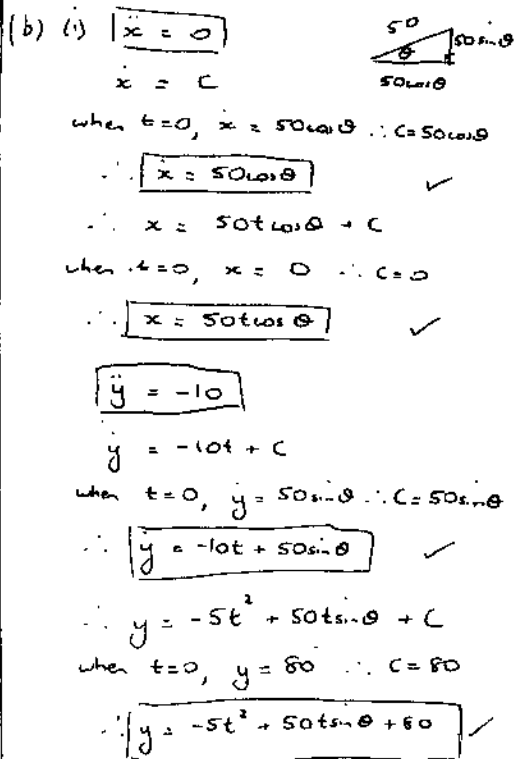 (b) (i) ẍ = 0
50
50sinθ
θ
50cosθ
ẋ = C
when t=0, ẋ = 50cosθ ∴ C=50cosθ
∴ ẋ = 50cosθ ✓
∴ x = 50tcosθ + C
when t=0, x = 0 ∴ C=0
∴ x = 50tcosθ ✓
ÿ = -10
ẏ = -10t + C
when t=0, ẏ = 50sinθ ∴ C=50sinθ
∴ ẏ = -10t + 50sinθ ✓
∴ y = -5t² + 50tsinθ + C
when t=0, y = 80 ∴ C=80
∴ y = -5t² + 50tsinθ + 80 ✓